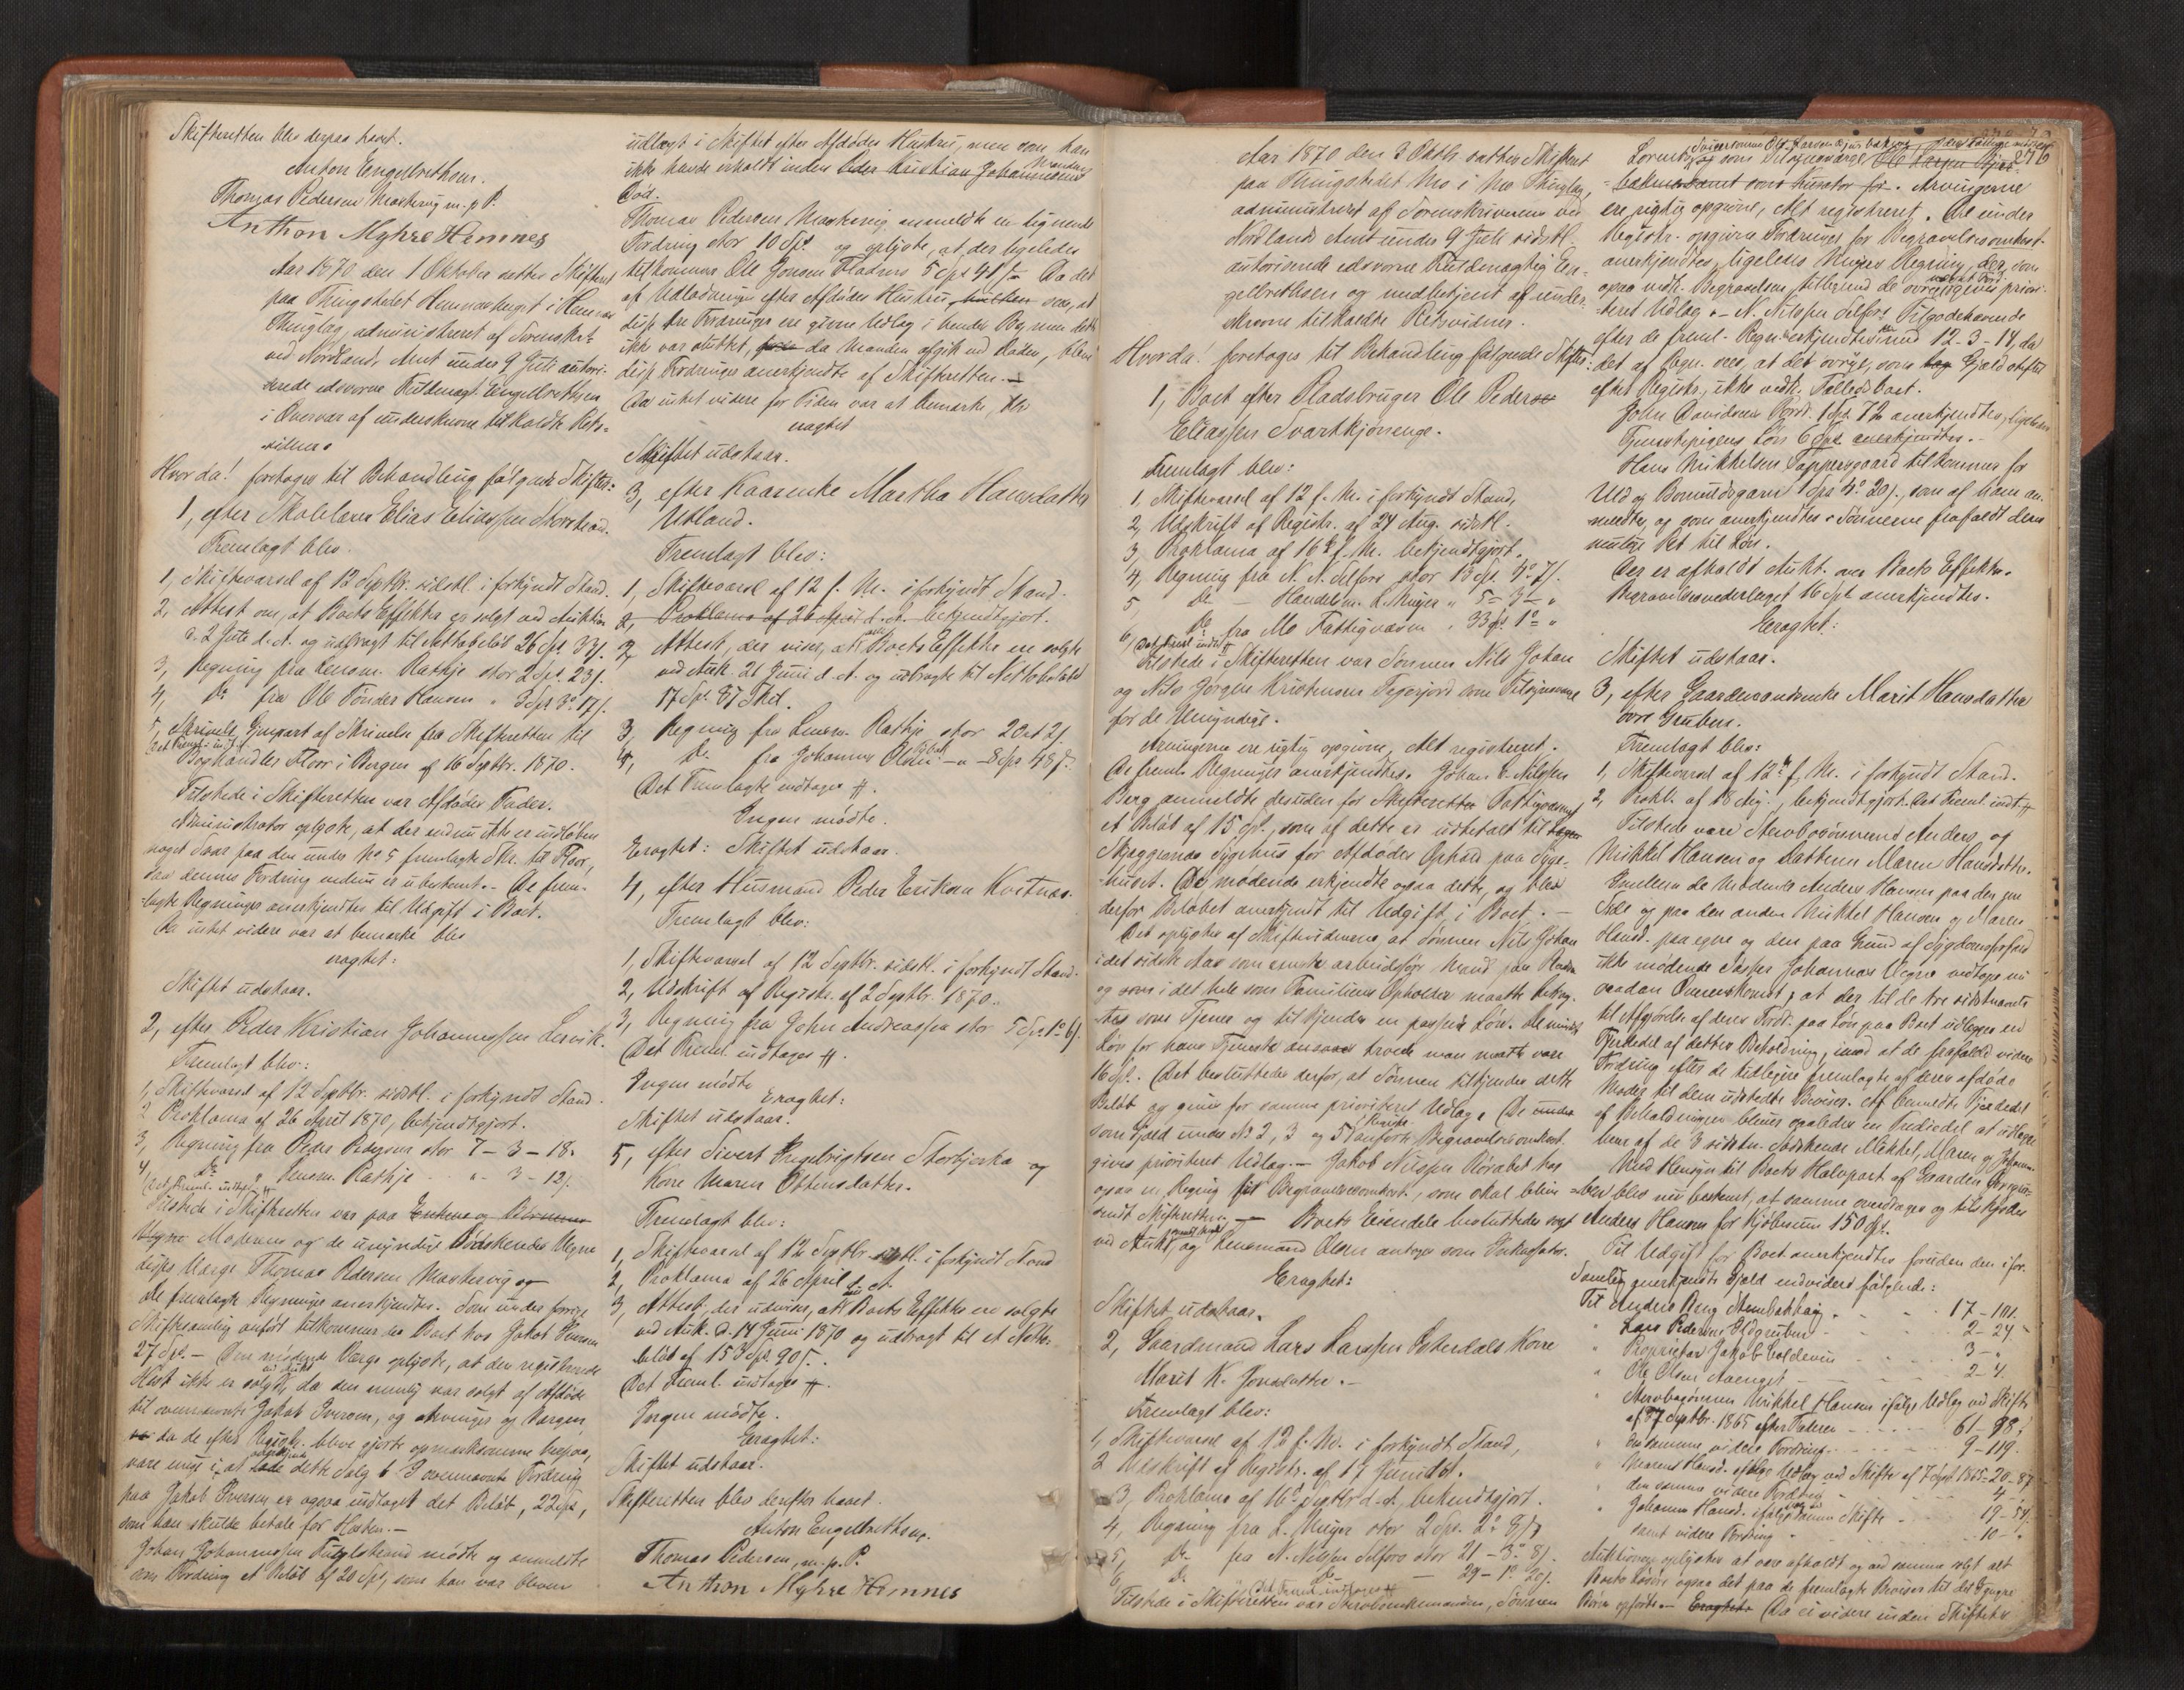 Skifteretten blev derpaa hævet.
Anton Engelbrethsen.
Thomas Pedersen Mastervig m. p. P.
Anthon Myhre Hemnes
Aar 1870 den 1 Oktober sattes Skifteret
paa Thingstedet Hemnesberget i Hemnes
Thinglag, administreret af Sorenskr.
ved Nordlands Amt under 9 Juli autori-
serede edsvorne Fuldmægt. Engelbrethsen
i Overvær af underskrevne tilkaldte Rets-
vidner.
Hvor da! foretoges til Behandling følgende Skifter:
1, efter Skolelærer Elias Eliassen Storstrand.
Fremlagt blev.
1, Skiftevarsel af 12 Septbr. sidstl. i forkyndt Stand.
2, Attest om, at Boets Effekter er solgt ved Auktion
d. 2 Juli d. A. og udbragt til Nettobeløb 26 Spd 33 s.
3, Regning fra Lensm. Rathje stor 2 Spd. 23 s.
4, Do fra Ole Tønder Hansen " 3 Spd 3 o 17 s.
5, Gjenpart af Skrivelse fra Skifteretten til
Det Freml. indt. #
Boghandler Floor i Bergen af 16 Septbr. 1870.
Tilstede i Skifteretten var Afdødes Fader.
Administrator oplyste, at der endnu ikke er indløben
noget Svar paa den under No 5 fremlagte Skr. til Floor,
saa dennes Fordring endnu er ubestemt. - De frem-
lagte Regninger anerkjendtes til Udgift i Boet.
Da intet videre var at bemærke blev
eragtet:
Skiftet udstaar.
2, efter Peder Kristian Johannessen Lervik.
Fremlagt blev:
1, Skiftevarsel af 12 Septbr. sidstl. i forkyndt Stand.
2 Proklama af 26 April 1870, bekjendtgjort.
3, Regning fra Peder Pedersen stor 7 - 3 - 18.
4, Do " Lensm. Rathje - " - 3 - 12 s.
Det Freml. indtages #
Tilstede i Skifteretten var paa Enkens og Børnenes
Vegne Moderen og de umyndige Sødskendes Vegne
disses Værge Thomas Pedersen Mastervig og
De fremlagte Regninger anerkjendtes. Som under forrige
Skiftesamling anført tilkommer der Boet hos Jakob Iversen
27 Spd. - Den mødende Værge oplyste, at den registrerede
Hest ikke er solgt, da den nemlig var solgt af Afdøde
til ovennævnte Jakob Iversen, og Arvinger og Værgen
da de efter Registr. bleve gjorte opmærksomme herpaa,
vare enige i, at lade dette Salg b I ovennævnte Fordring
paa Jakob Iversen er ogsaa indtaget det Beløb, 22 Spd,
som han skulde betale for Hesten. -
Johan Johannessen Fuglstrand mødte og anmeldte
som Fordring et Beløb af 20 Spd, som han var bleven
udlagt i Skiftet efter Afdødes Hustru, men som han
ikke havde erholdt inden Peder Kristian Johannessens
Mandens
Død.
Thomas Pedersen Mastervig anmeldte en lignende
Fordring stor 10 Spd. og oplyste, at der ligeledes
tilkommer Ole Jonsen Fladmo 5 Spd 41 s. Da det
af Udlodningen efter Afdødes Hustru sees, at
disse tre Fordringer ere givne Udlag i hendes Bo, men dette
ikke var sluttet, da Manden afgik ved Døden, bleve
disse Fordringer anerkjendte af Skifteretten. -
Da intet videre for Tiden var at bemærke, blev
eragtet
Skiftet udstaar.
3, efter Kaarenke Martha Hansdatter
Utland.
Fremlagt blev:
1, Skiftevarsel af 12 f. M. i forkyndt Stand.
2, Proklama af 26 April d. A. bekjendtgjort.
2 Attest, der viser, at Boets Effekter ere solgte
ved Auk. 21 Juni d. A. og udbragte til Nettobeløb
17 Spd. 87 Skil.
3, Regning fra Lensm. Rathje stor 2 ort 2 s
4, Do fra Johannes Olsen - " - 8 Spd 48 s.
Det Fremlagte indtages #.
Ingen mødte.
Eragtet: Skiftet udstaar.
4, efter Husmand Peder Eriksen Kvitnæs.
Fremlagt blev:
1, Skiftevarsel af 12 Septbr. sidstl. i forkyndt Stand.
2, Udskrift af Registr. af 2 Septbr. 1870.
3, Regning fra John Andreassen stor 5 Spd 1 o 6 s.
Det Freml. indtages #.
Ingen mødte
Eragtet:
Skiftet udstaar.
5, efter Sivert Ingebrigtsen Storbjerka og
Kone Maren Ottensdatter.
Fremlagt blev:
1, Skiftevarsel af 12 Septbr. sidstl. i forkyndt Stand
2, Proklama af 26 April d. A.
3, Attest, der udviser, at Boets Effekter ere solgte
ved Auk. d. 14 Juni 1870 og udbragt til et Netto-
beløb af 153 Spd. 90 s.
Det Freml. indtages #.
Ingen mødte.
Eragtet:
Skiftet udstaar.
Skifteretten blev derefter hævet.
Anton Engelbrethsen.
Thomas Pedersen, m. p. P.
Anthon Myhre Hemnes
276
Aar 1870 den 3 Oktbr. sattes Skifteret
paa Thingstedet Mo i Mo Thinglag,
administreret af Sorenskriverens ved
Nordlands Amt under 9 Juli sidstl.
autoriserede edsvorne Fuldmægtig En-
gelbrethsen og medbetjent af under-
skrevne tilkaldte Retsvidner.
Hvor da: foretoges til Behandling følgende Skifter:
1, Boet efter Pladsbruger Ole Peder
Eliassen Svartkjønenge.
Fremlagt blev:
1, Skiftevarsel af 12 f. M. i forkyndt Stand,
2, Udskrift af Registr. af 24 Aug. sidstl.
3, Proklama af 16 f. M. bekjendtgjort.
4, Regning fra N. N. Selfors stor 13 Spd. 4 o 7 s.
5, Do - Handelsm. L. Meyer " 5 - 3 - "
6, Do fra Mo Fattigvæsen " 33 Spd. 1 o "
Det Freml. indt. #
Tilstede i Skifteretten var Sønnen Nils Johan
og Nils Jørgen Kristensen som Tilsynsværge
for de Umyndige.
Arvingerne ere rigtig opgivne, Alt registreret.
De freml. Regninger anerkjendtes. Johan E. Nilssen
Berg anmeldte desuden for Skifteretten Fattigvæsenet
et Beløb af 15 Spd., som af dette er udbetalt til
Sygehus for Afdødes Ophold paa Syge-
huset. De mødende erkjendte ogsaa dette, og blev
derfor Beløbet anerkjendt til Udgift i Boet. -
Det oplystes af Skiftevidnerne, at Sønnen Nils Johan
i det sidste Aar som eneste arbeidsfør Mand paa Pladsen
og som i det hele som Familiens Opholder maatte betrag-
tes som Tjener og tilkjendes en passende Løn. De mindste
Løn for hans Tjeneste troede man maatte være
16 Spd. Det besluttedes derfor, at Sønnen tilkjendes dette
Beløb og gives for samme prioriteret Udlæg. De under
som Gjæld under No 2, 3 og 5 anførte Begravelsesomkost.
gives prioriteret Udlæg. - Jakob Nilssen Rørabet har
ogsaa en Regning for Begravelsesomkost., som skal blive
sendt Skifteretten. - Boets Eiendele besluttedes solgt
ved Aukt., og Lensmand Olsen antoges som Inkassator.
Eragtet:
Skiftet udstaar.
2, Gaardmand Lars Larssen Østerdals Kone
Marit K. Jonsdatter. -
Fremlagt blev:
1, Skiftevarsel af 12 f. M. i forkyndt Stand,
2 Udskrift af Registr. af 17 Juni sidstl.
3, Proklama af 16 Septbr d. A. bekjendtgjort.
4, Regning fra L. Meyer stor 2 Spd. 2 o 8 s
5, Do fra N. Nilssen Selfors stor 21 - 3 o 8 s.
6, Do Do - 29 - 1 o 20 s.
Det Freml. indtages #
Tilstede i Skifteretten var Stervboenkemanden, Sønnen
Lorents, og som Tilsynsværge Ole Larsen
samt som Kurator for. Arvingerne
ere rigtig opgivne, Alt registreret. De under
Registr. opgivne Fordringer for Begravelsesomkost.
anerkjendtes, ligeledes Meyers Regning, der, som
opaa vedk. Begravelsen, tilligemed de øvrige gives priori-
teret Udlæg. - N. Nilssen Selfors Tilgodehavende
efter de freml. Regn. erkjendtes med 12 - 3 - 14, da
det af Regn. sees, at det øvrige, som Gjæld stiftet
efter Registr., ikke vedk. Fællesboet.
John Davidsens Fordr. 1 Spd. 72 anerkjendtes, ligeledes
Tjenestepigens Løn 6 Spd anerkjendtes. -
Hans Mikkelsen Tappersgaard tilkommer for
Uld og Bomuldsgarn 1 Spd 4 o 20 s., som af ham an-
meldtes, og som anerkjendtes. Sønnerne frafaldt deres
Ret til Løn.
Der er afholdt Aukt. over Boets Effekter.
Begravelsesvederlaget 16 Spd anerkjendtes.
Eragtet:
Skiftet udstaar.
3, efter Gaardmandsenke Marit Hansdatter
øvre Gruben.
Fremlagt blev:
1, Skiftevarsel af 12 f. M. i forkyndt Stand.
2, Prokl. af 18 Aug., bekjendtgjort. Det Freml. indt. #
Tilstede vare Stervbosønnerne Anders og
Mikkel Hansen og Datteren Maren Hansdatter.
Imellem de Mødende Anders Hansen paa den ene
Side og paa den anden Mikkel Hansen og Maren
Hansd. paa egne og den paa Grund af Sygdomsforfald
ikke mødende Søster Johannas Vegne vedtoges nu
saadan Overenskomst, at der til de tre sidstnævnte
til Afgjørelse af deres Fordr. paa Løn paa Boet udlægges en
Fjerdedel af dettes Beholdning, imod at de frafaldt videre
Fordring efter de tidligere fremlagte af deres afdøde
Moder til dem udstedte Beviser. Af bemeldte Fjerdedel
af Beholdningen bliver saaledes en Trediedel at udlægge
hver af de 3 sidstn. Sødskende Mikkel, Maren og Johanna.
Med Hensyn til Boets Halvpart af Gaarden øvre Gru-
ben blev nu bestemt, at samme overdrages og tilskjødes
Anders Hansen for Kjøbesum 150 Spd.
Til Udgift for Boet anerkjendtes foruden den i for.
Samling anerkjendte Gjæld endvidere følgende:
Til Andrea Berg Stenbakhaug - - 17 - 101.
" Lars Pedersen Ildgruben - - 2 - 24
" Proprietær Jakob Coldevin - - 3 - "
" Ole Olsen Aaenget - - 2 - 4
" Stervbosønnen Mikkel Hansen ifølge Udlæg ved Skifte
af 7 Septbr. 1865 efter Faderen - - 61 - 98
" den samme videre Fordring - - 9 - 119.
" Maren Hansd. ifølge Udlæg ved Skifte af 7 Sept. 1865 - 20 - 87
" den samme videre Fordring - - 4 -
" Johanna Hansd. ifølge samme Skifte - - 19 - 54
samt videre Fordring - - 10 - "
Auktionen oplystes at være afholdt og ved samme solgt alt
Boets Løsøre ogsaa det paa de fremlagte Beviser til de
Børn opførte. - Eragtet: Da ei videre inden Skiftet